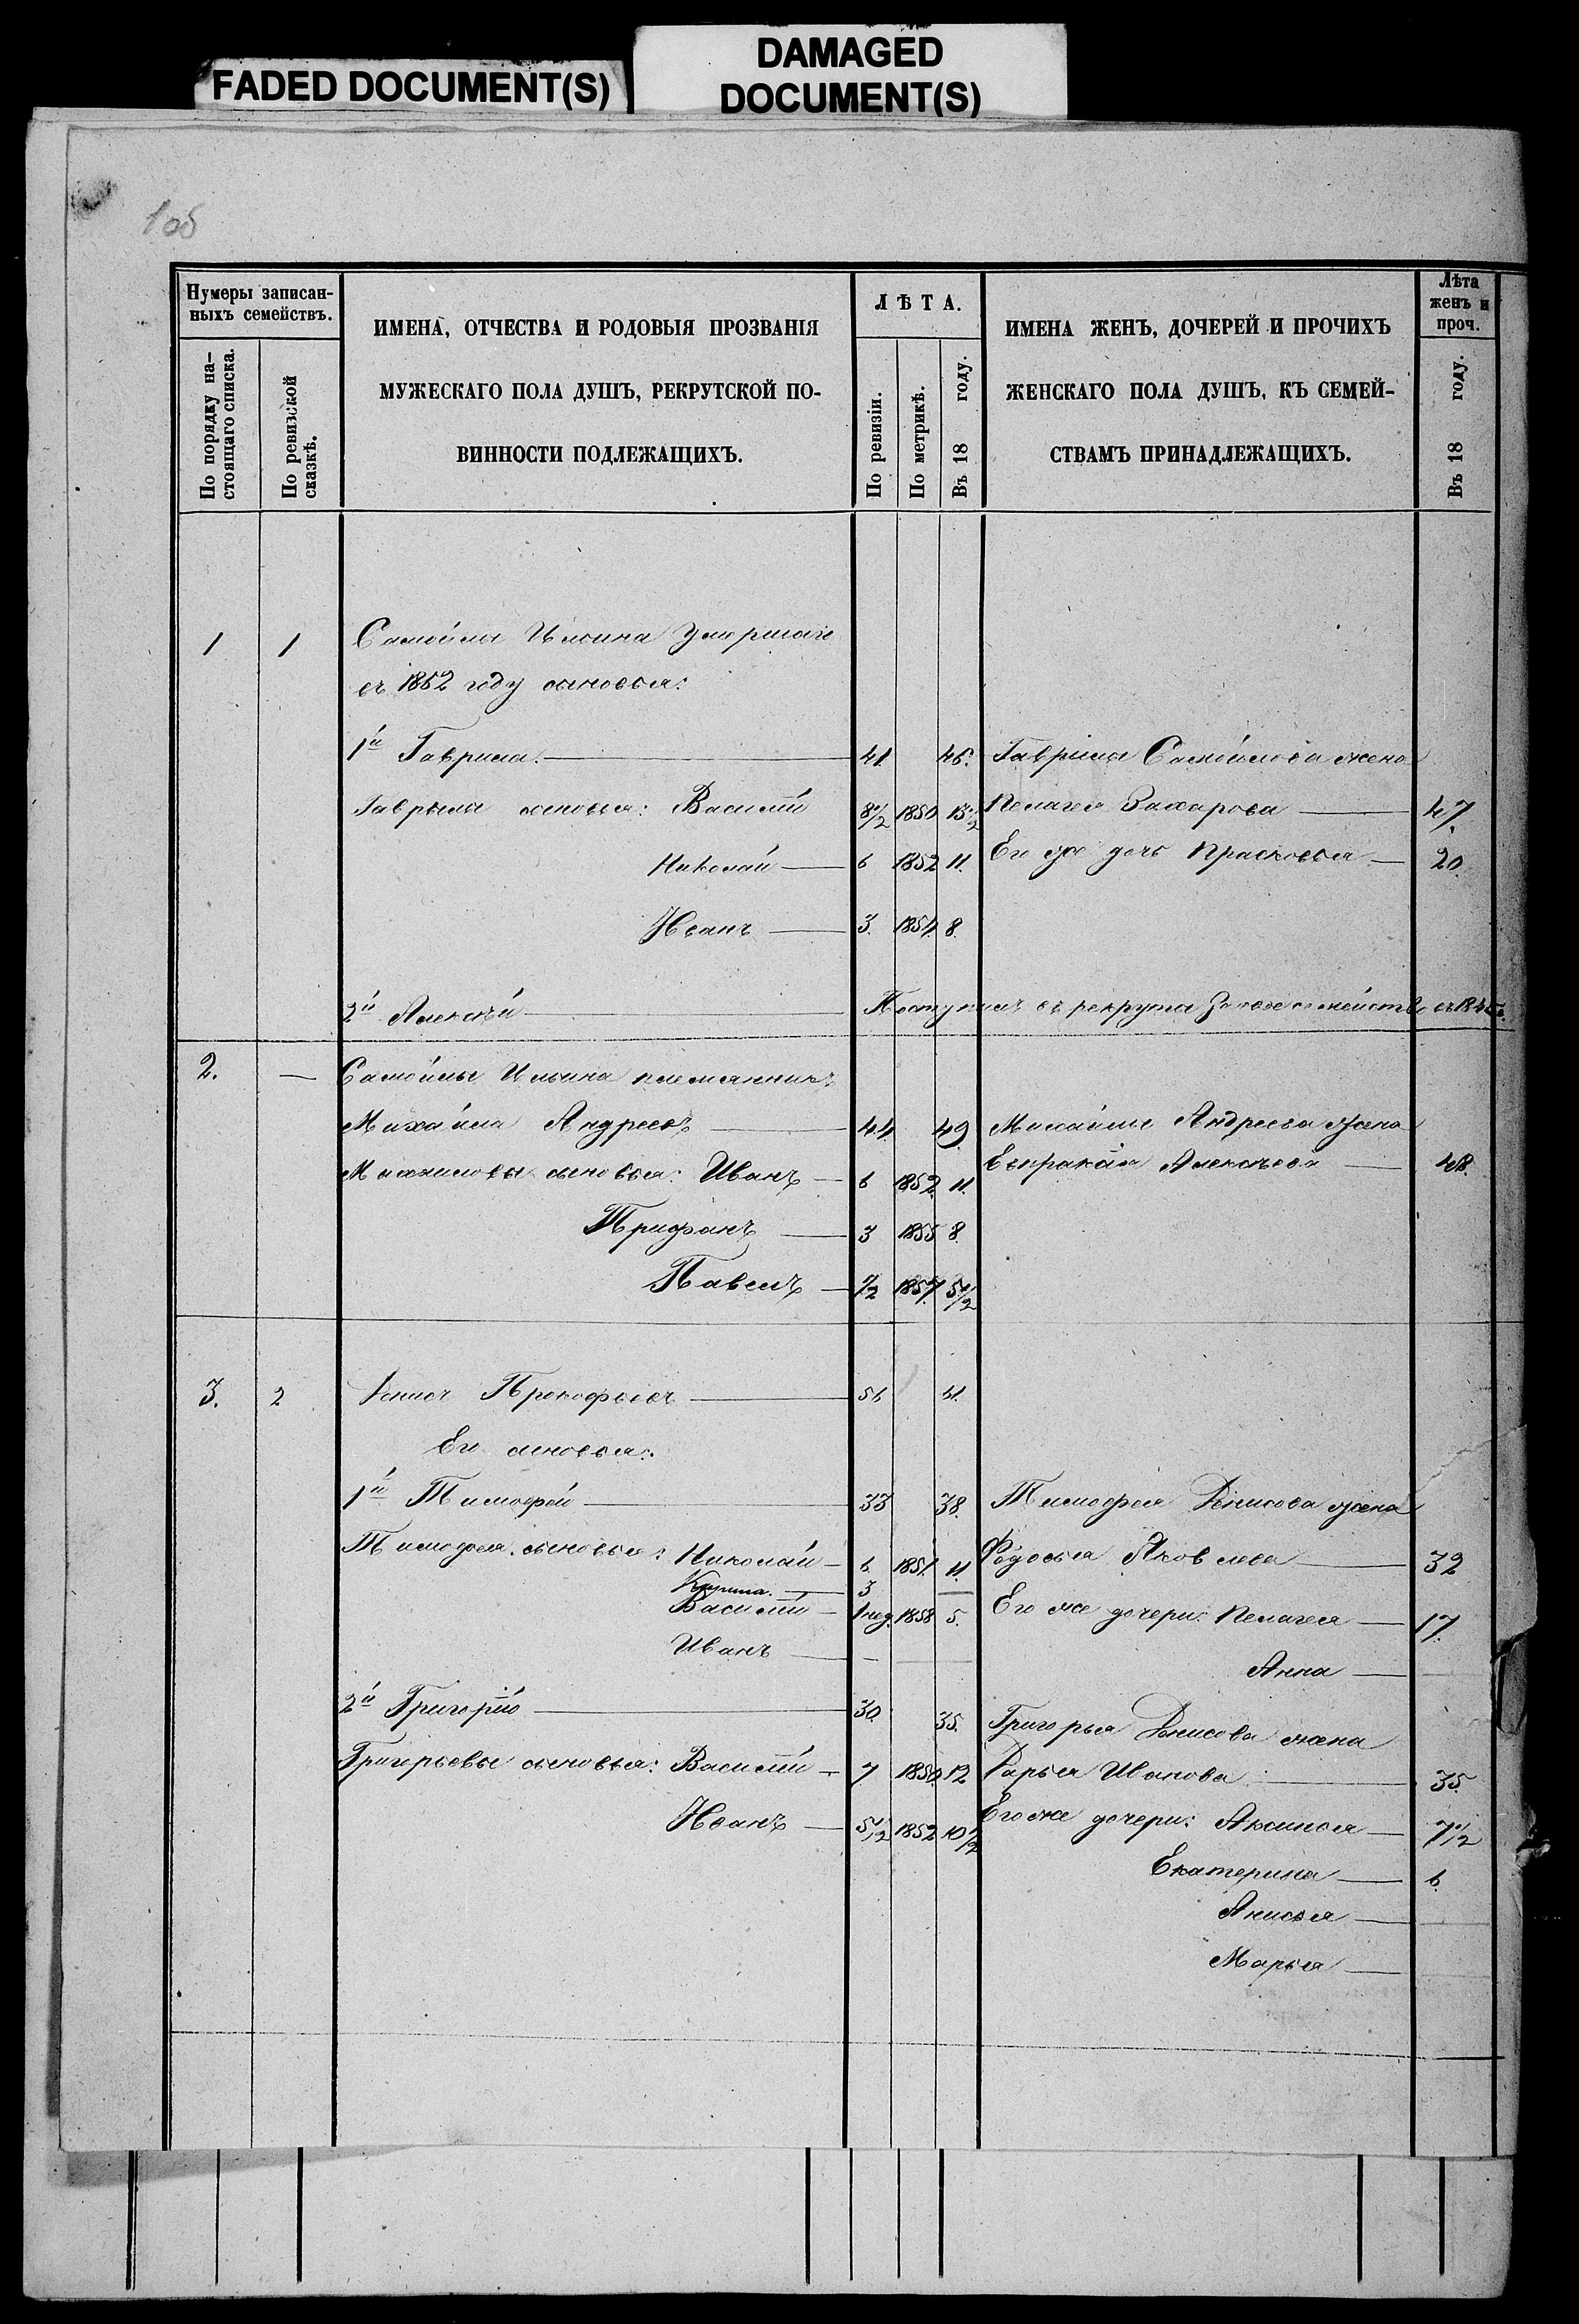 FADED DOCUMENT(S)
DAMAGED
DOCUMENT(S)
1об
Нумеры записан-
ныхъ семействъ.
По порядку на-
стоящаго списка.
По ревизской
сказкѣ.
ИМЕНА, ОТЧЕСТВА И РОДОВЫЯ ПРОЗВАНІЯ
МУЖЕСКАГО ПОЛА ДУШЪ, РЕКРУТСКОЙ ПО-
ВИННОСТИ ПОДЛЕЖАЩИХЪ.
ЛѢТА.
По ревизіи.
По метрикѣ.
Въ 18 году.
ИМЕНА ЖЕНЪ, ДОЧЕРЕЙ И ПРОЧИХЪ
ЖЕНСКАГО ПОЛА ДУШЪ, КЪ СЕМЕЙ-
СТВАМЪ ПРИНАДЛЕЖАЩИХЪ.
Лѣта
женъ и
проч.
Въ 18 году.
1 1 Самойлы Ильина умершаго
въ 1852 году сыновья:
1й Гаврила. 41. 46. Гаврилы Самойлова жена
Гаврилы сыновья: Василій 8 1/2 1850 13 1/2 Пелагея Захарова 47.
Николай 6 1852 11. Его же дочь Прасковья 20.
Иванъ 3. 1854. 8.
2й Алексѣй Поступилъ въ рекруты за свое семейство въ 184
2. — Самойлы Ильина племянникъ
Михайла Андреевъ 44. 49 Михайлы Андреева жена
Михайловы сыновья: Иванъ 6 1852. 11. Евпраксія Алексѣева 48.
Трифанъ 3 1855 8.
Павелъ 1/2 1857. 5 1/2
3. 2 Денисъ Прокофьевъ 56 61.
Его сыновья:
1й Тимофей 33 38. Тимофея Денисова жена
Тимофея сыновья: Николай 6 1851. 11. Федосья Яковлева 32
Кирила. 3
Василій 1 нед. 1858 5. Его же дочери: Пелагея 17.
Иванъ
Анна
2й Григорій 30. 35. Григорья Денисова жена
Григорьевы сыновья: Василій 7 1850. 12 Дарья Иванова 35.
Иванъ 5 1/2 1852 10 1/2 Его же дочери: Аксинья 7 1/2
Екатерина 6.
Анисья
Марья